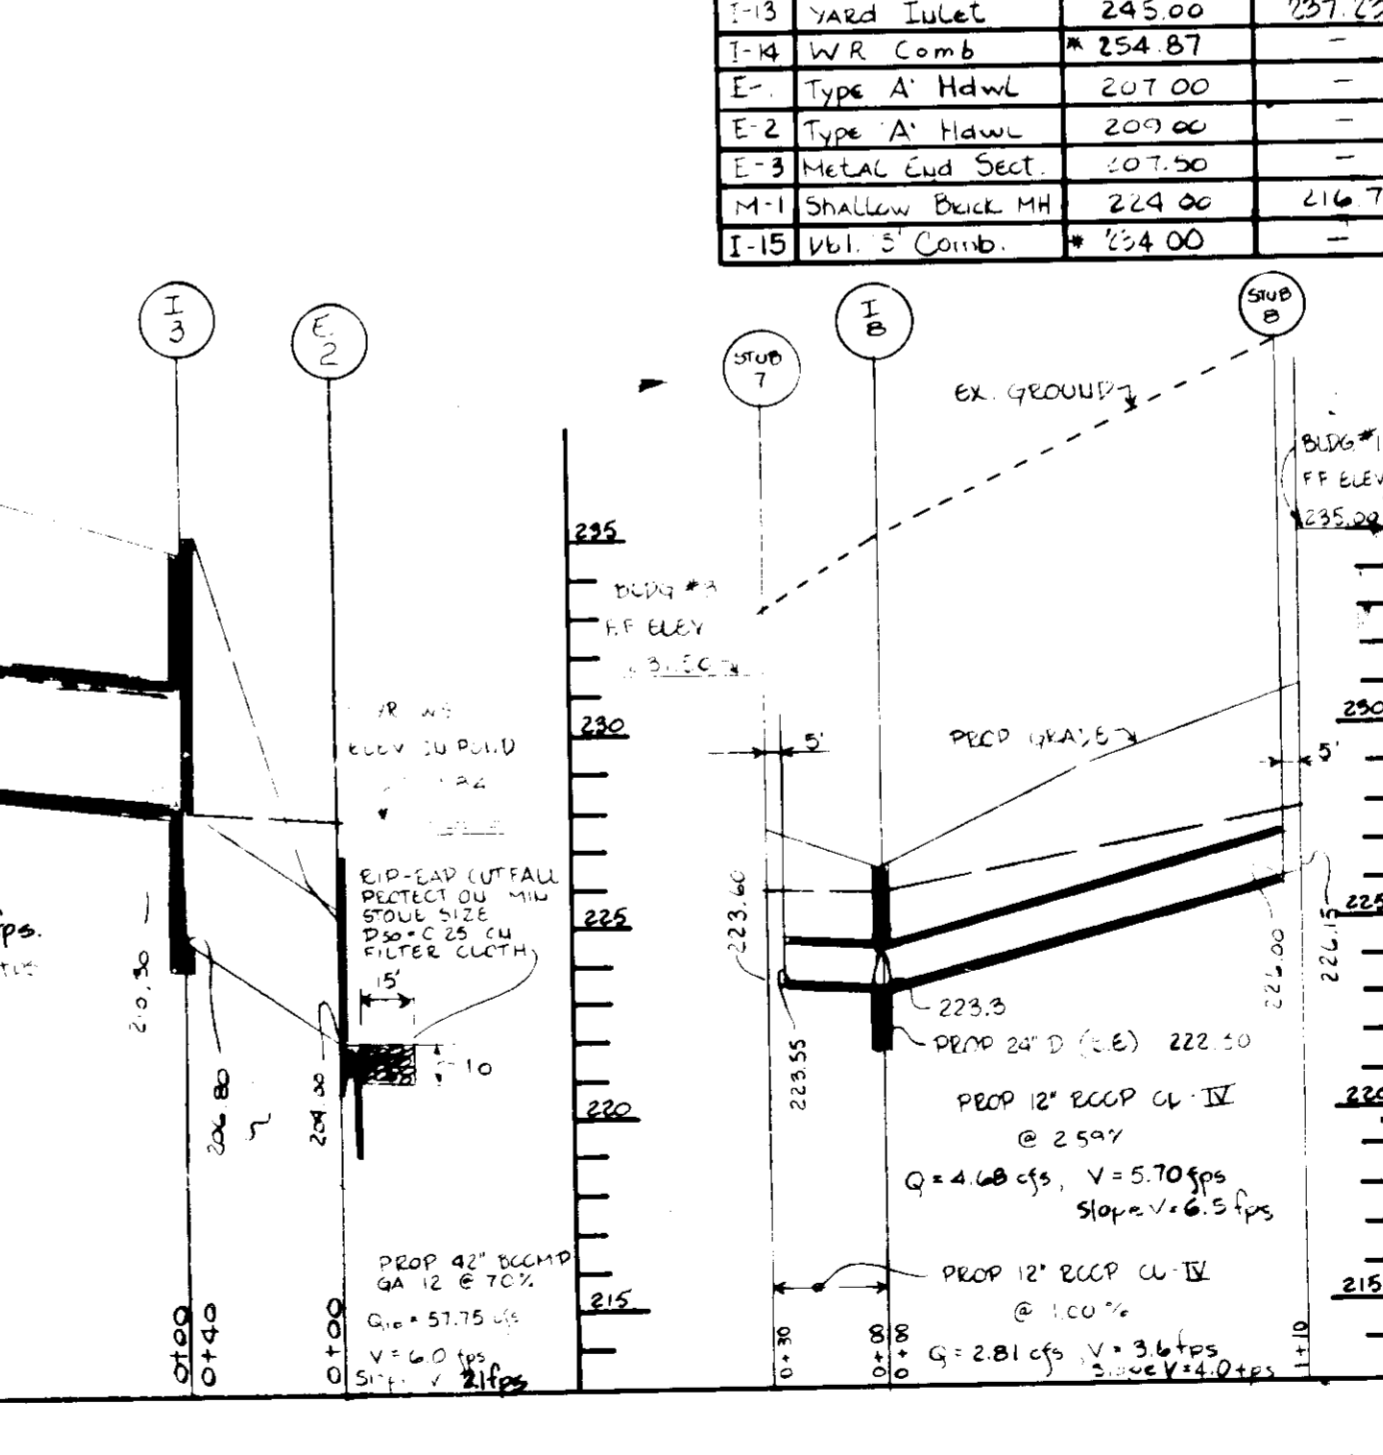 I-13 YARD INLET 245.00 237.23
I-14 WR Comb * 254.87 -
E- Type 'A' Hdwl 207 00 -
E-2 Type 'A' Hdwl 209 00 -
E-3 METAL END SECT. 07.50 -
M-1 SHALLOW BRICK MH 224 00 216.7
I-15 Vbl. 'S' Comb. * 234 00 -
I
3
E
2
STUB
7
I
8
STUB
8
EX. GROUND
BLDG #1
FF ELEV
235.00
235
BLDG #3
F.F ELEV
230
5'
PROP GRADE
230
5'
YR WS
ELEV IN POND
RIP-RAP OUTFALL
PROTECTION MIN
STONE SIZE
FILTER CLOTH
15'
10
fps.
210.30
206.80
204.00
225
225
220
220
215
215
223.60
223.55
223.3
226.00
226.15
PROP 24" D
PROP 12" RCCP CL-IV
@ 2.59%
Q = 4.68 cfs, V = 5.70 fps
Slope V = 6.5 fps
PROP 12" RCCP CL-IV
@ 1.00 %
Q = 2.81 cfs, V = 3.6 fps
Slope V = 4.0 fps
PROP 42" BCCMP
GA 12 @ 70%
Q10 = 57.75 cfs
V = 6.0 fps
V 21fps
0+00
0+40
0+00
0+30
0+80
0+80
1+10